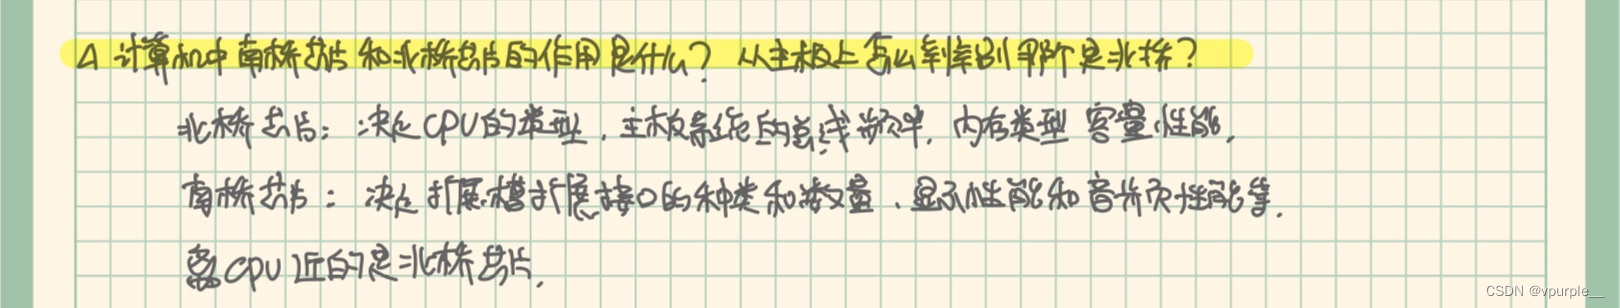 △ 计算机中南桥芯片和北桥芯片的作用是什么？从主板上怎么判别哪个是北桥？
北桥芯片：决定CPU的类型，主板系统的总线频率，内存类型 容量 性能，
南桥芯片：决定扩展槽扩展接口的种类和数量、显示性能和音频性能等.
离CPU近的是北桥芯片.
CSDN @vpurple__